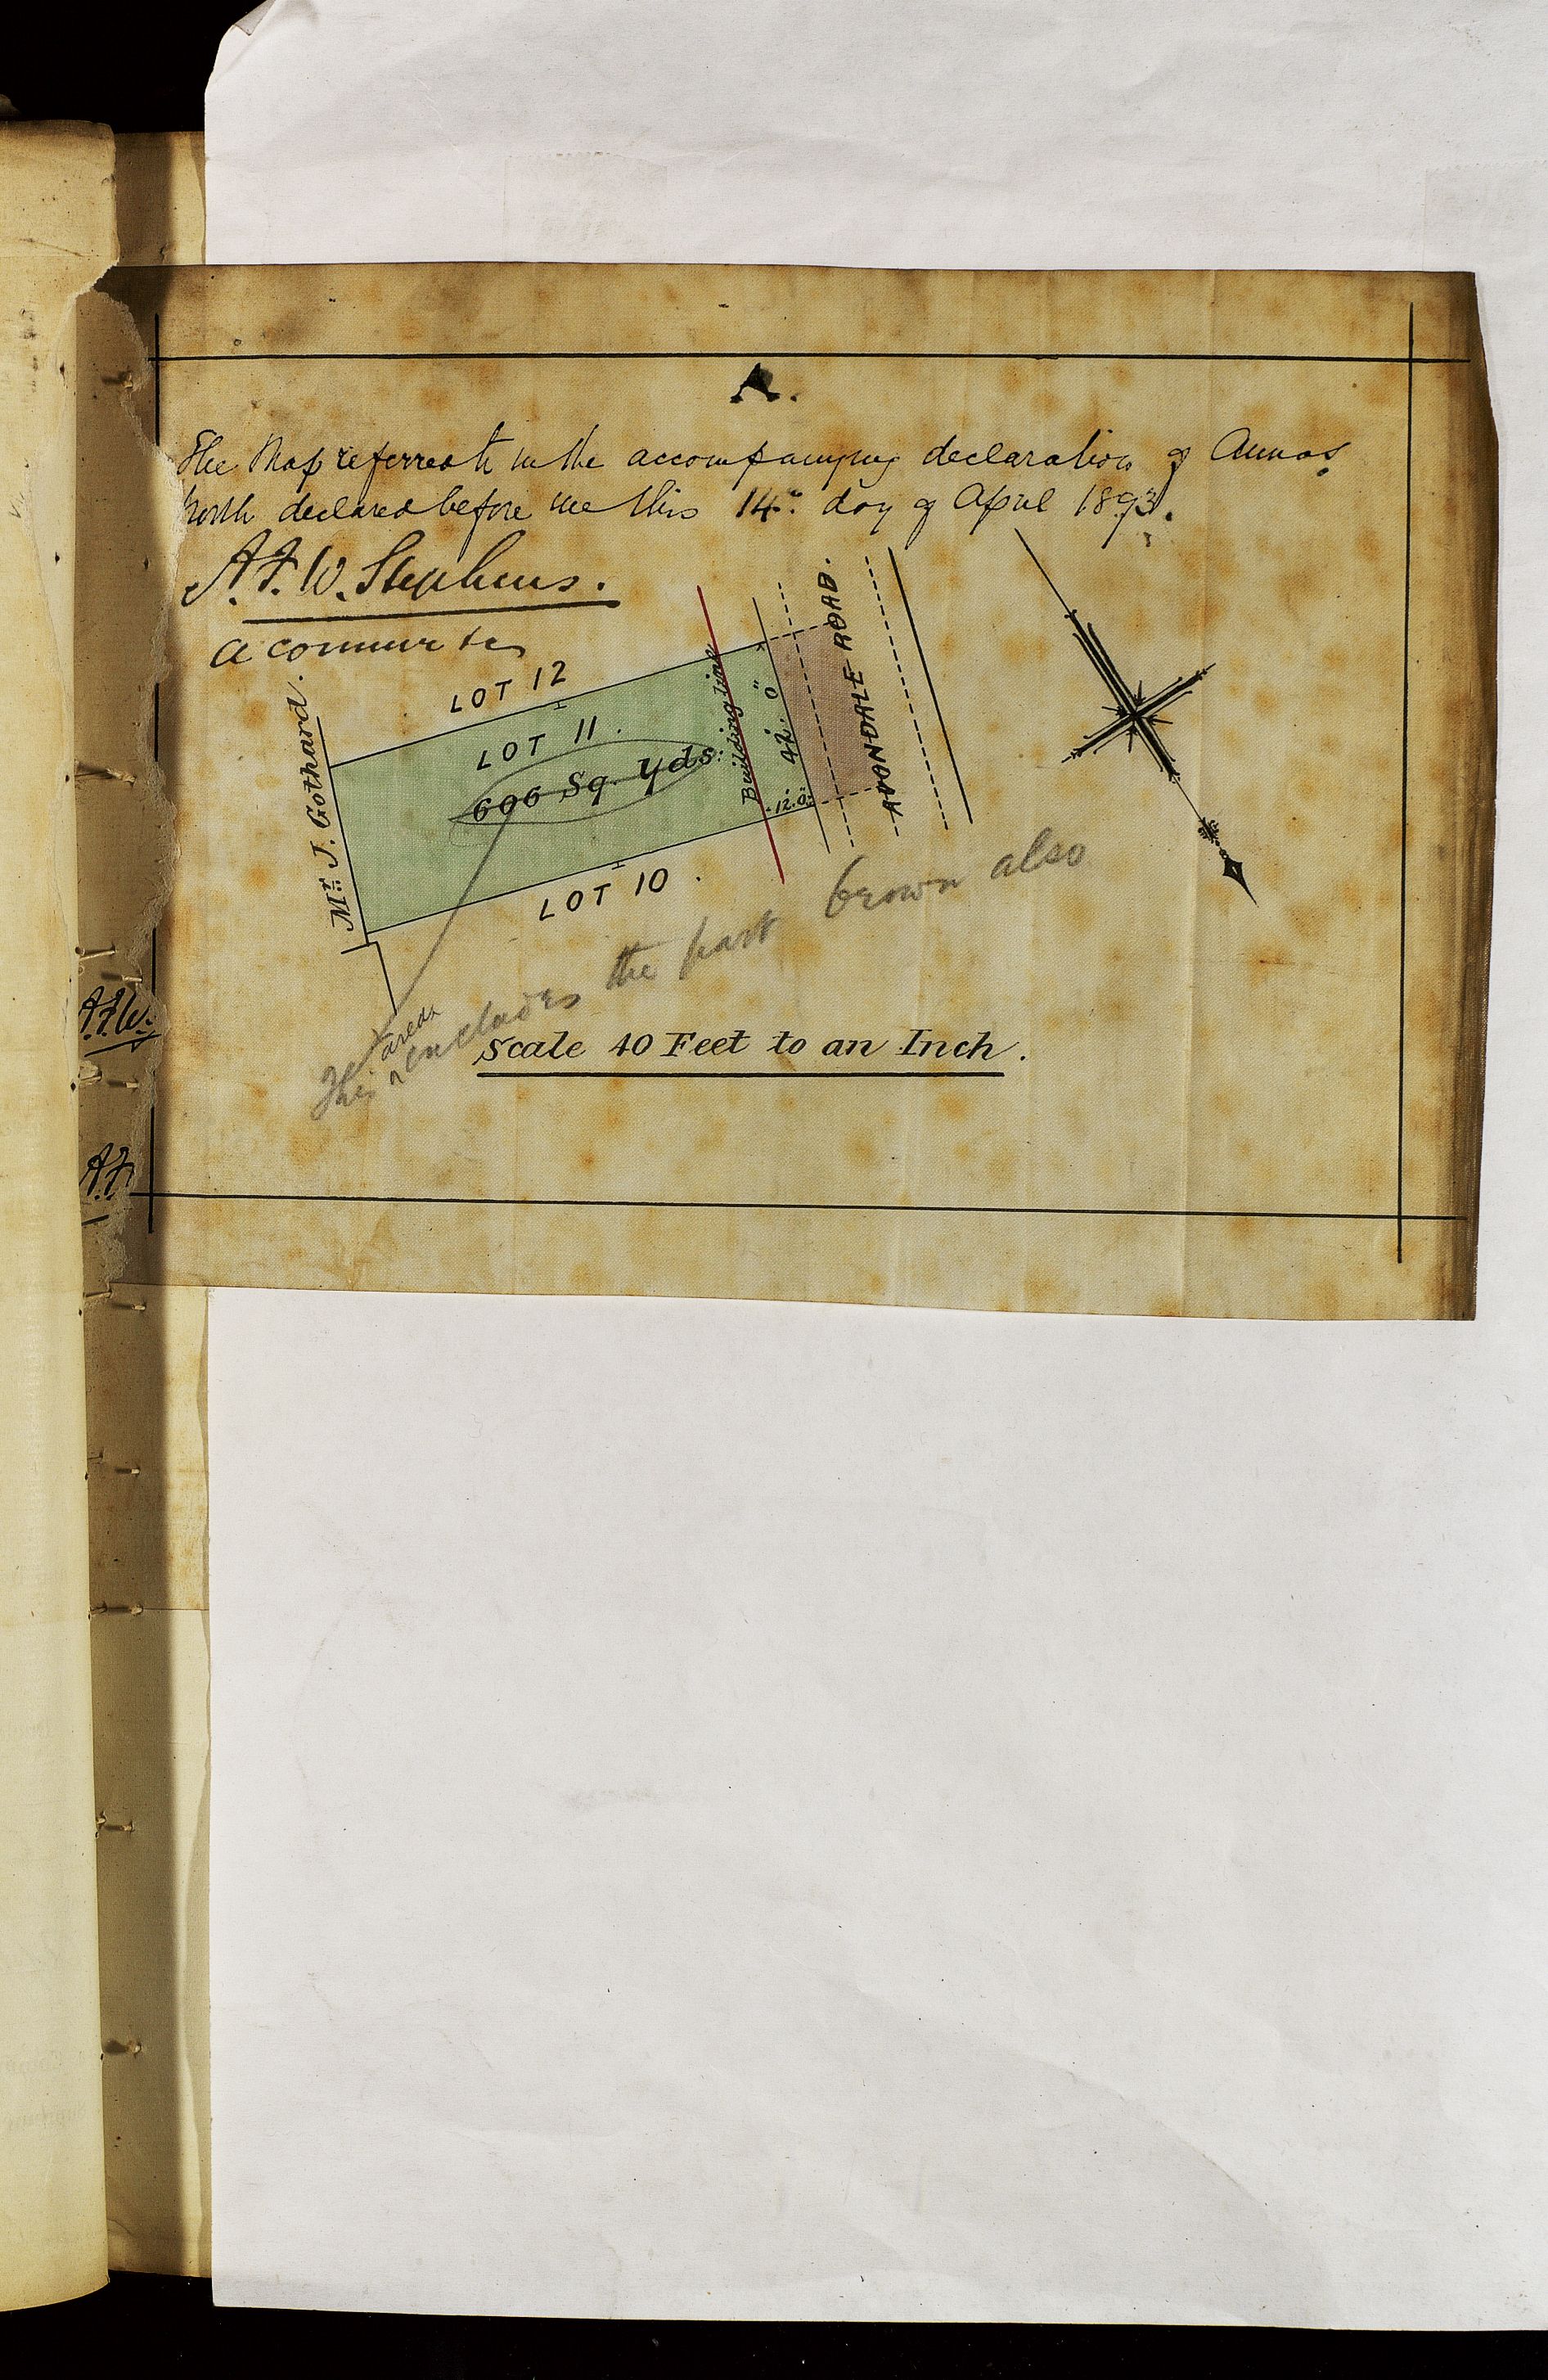 A.
The Map referred to in the accompanying declaration of Amos
North declared before me this 14th day of April 1893.
A.F.W. Stephens.
a commr &c
LOT 12
LOT 11.
606 Sq. Yds:
Building line
42'. 0"
12.0"
AVONDALE ROAD.
Mr. J. Gothard.
LOT 10.
This area includes the part brown also
Scale 40 Feet to an Inch.
A.F.W.
A.F.